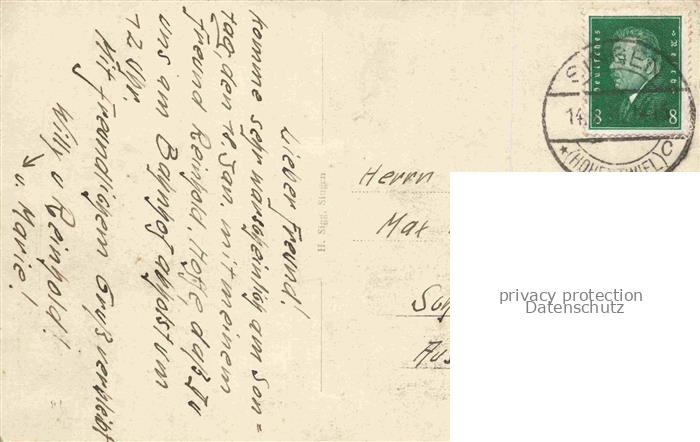 Lieber Freund!
komme sehr warscheinlich am Son=
tag, den 18. Jan. mit meinem
Freund Reinhold. Hoffe daß Du
uns am Bahnhof abholst um
12 Uhr.
Mit freundlichem Gruß verbleibt
Willy u Reinhold!
u. Marie!
H. Sigg, Singen
Deutsches Reich
8 8
SINGEN
14.
(HOHENTWIEL) C
Herrn
Max
privacy protection
Datenschutz